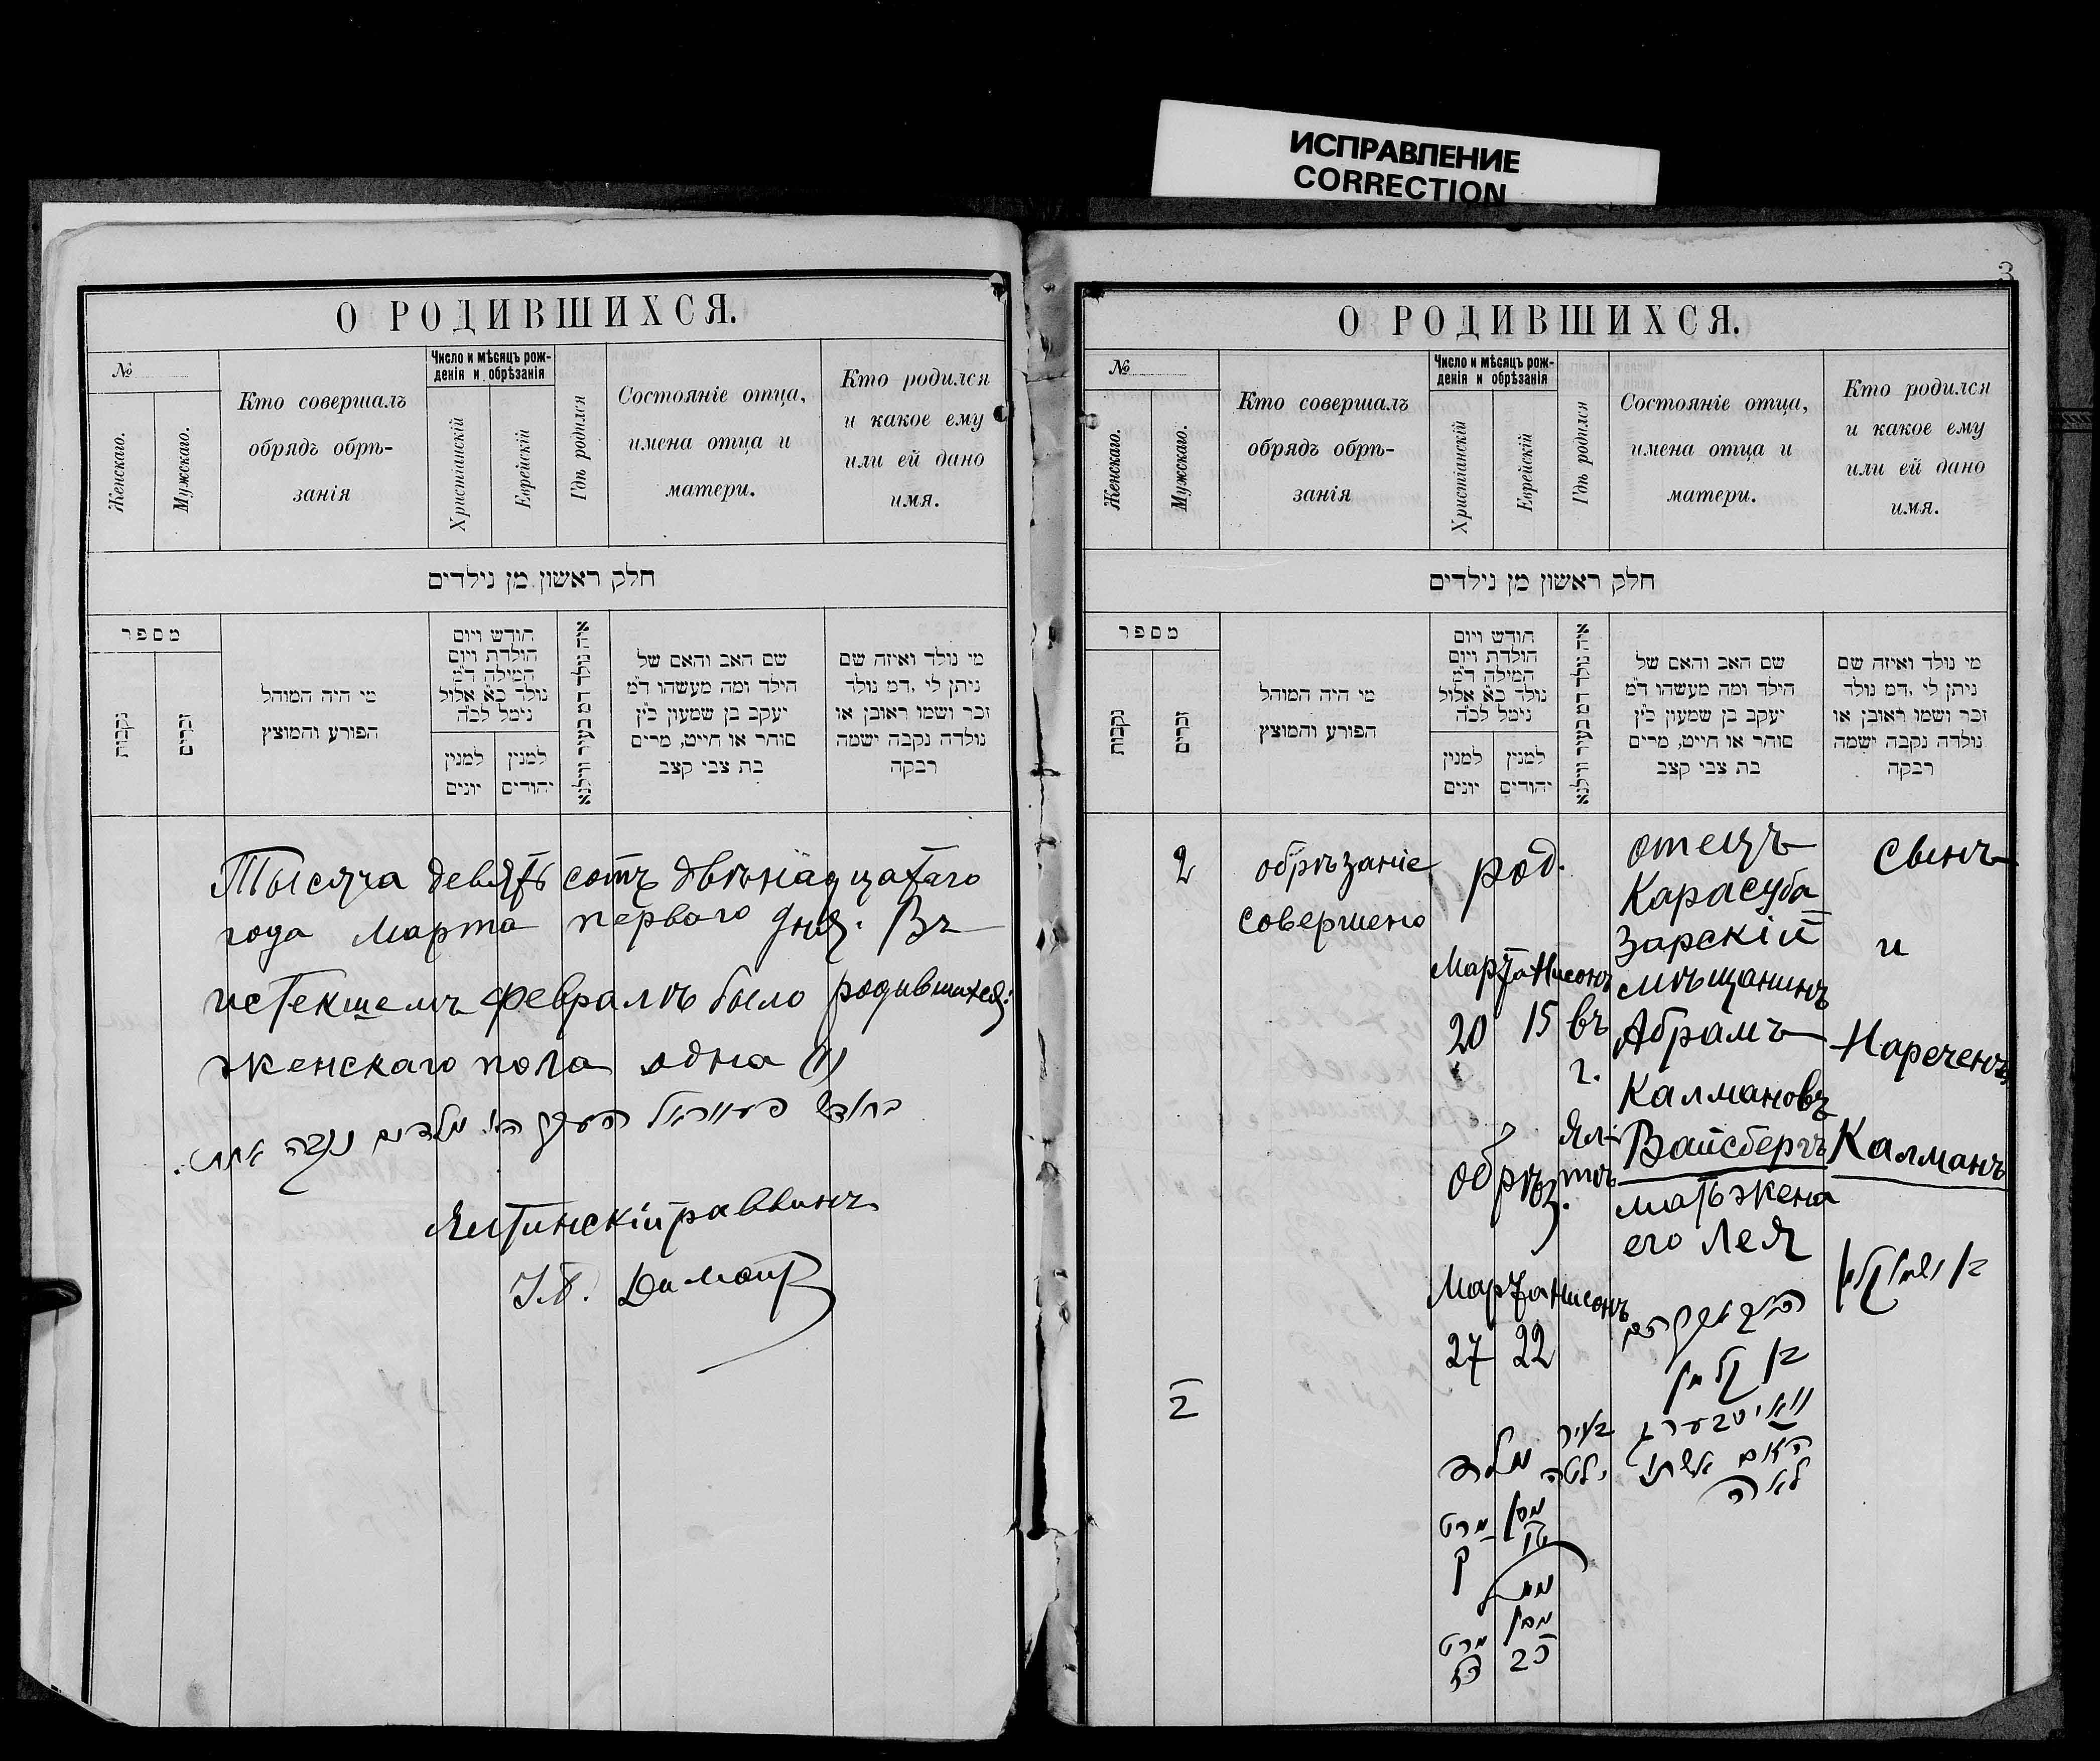 ИСПРАВЛЕНИЕ
CORRECTION
О РОДИВШИХСЯ.
№
Женскаго.
Мужскаго.
Кто совершалъ
обрядъ обрѣ-
занія
Число и мѣсяцъ рож-
денія и обрѣзанія
Христіанскій
Еврейскій
Гдѣ родился
Состояніе отца,
имена отца и
матери.
Кто родился
и какое ему
или ей дано
имя.
חלק ראשון מן נילדים
מספר
נקבות
זכרים
מי היה המוהל
הפורע והמוצץ
חודש ויום
הולדת ויום
המילה ד"מ
נולד כ"א אלול
נימל לכ"ה
למנין
יונים
למנין
יהודים
איה נולד דמ בעיר ווילנא
שם האב והאם של
הילד ומה מעשהו ד"מ
יעקב בן שמעון כ"ץ
סוחר או חייט, מרים
בת צבי קצב
מי נולד ואיזה שם
ניתן לי, דמ נולד
זכר ושמו ראובן או
נולדה נקבה ישמה
רבקה
Тысяча девятьсотъ двѣнадцатаго
года Марта перваго дня. Въ
истекшемъ февралѣ было родившихся:
женскаго пола одна (1)
Ялтинскій раввинъ
3
О РОДИВШИХСЯ.
№
Женскаго.
Мужскаго.
Кто совершалъ
обрядъ обрѣ-
занія
Число и мѣсяцъ рож-
денія и обрѣзанія
Христіанскій
Еврейскій
Гдѣ родился
Состояніе отца,
имена отца и
матери.
Кто родился
и какое ему
или ей дано
имя.
חלק ראשון מן נילדים
מספר
נקבות
זכרים
מי היה המוהל
הפורע והמוצץ
חודש ויום
הולדת ויום
המילה ד"מ
נולד כ"א אלול
נימל לכ"ה
למנין
יונים
למנין
יהודים
איה נולד דמ בעיר ווילנא
שם האב והאם של
הילד ומה מעשהו ד"מ
יעקב בן שמעון כ"ץ
סוחר או חייט, מרים
בת צבי קצב
מי נולד ואיזה שם
ניתן לי, דמ נולד
זכר ושמו ראובן או
נולדה נקבה ישמה
רבקה
2
обрѣзаніе
совершено
род.
Марта Нисонъ
20 15
обрѣз.
Марта Нисонъ
27 22
въ
г.
Ял-
тѣ
отецъ
Карасуба
зарскій
мѣщанинъ
Абрамъ
Калмановъ
Вайсбергъ
мать жена
его Лея
сынъ
и
Нареченъ
Калманъ
בן ושמו קלמן
בן קלמן
וואיסבערג
האם אשתו
לאה
בעיר
ילטה